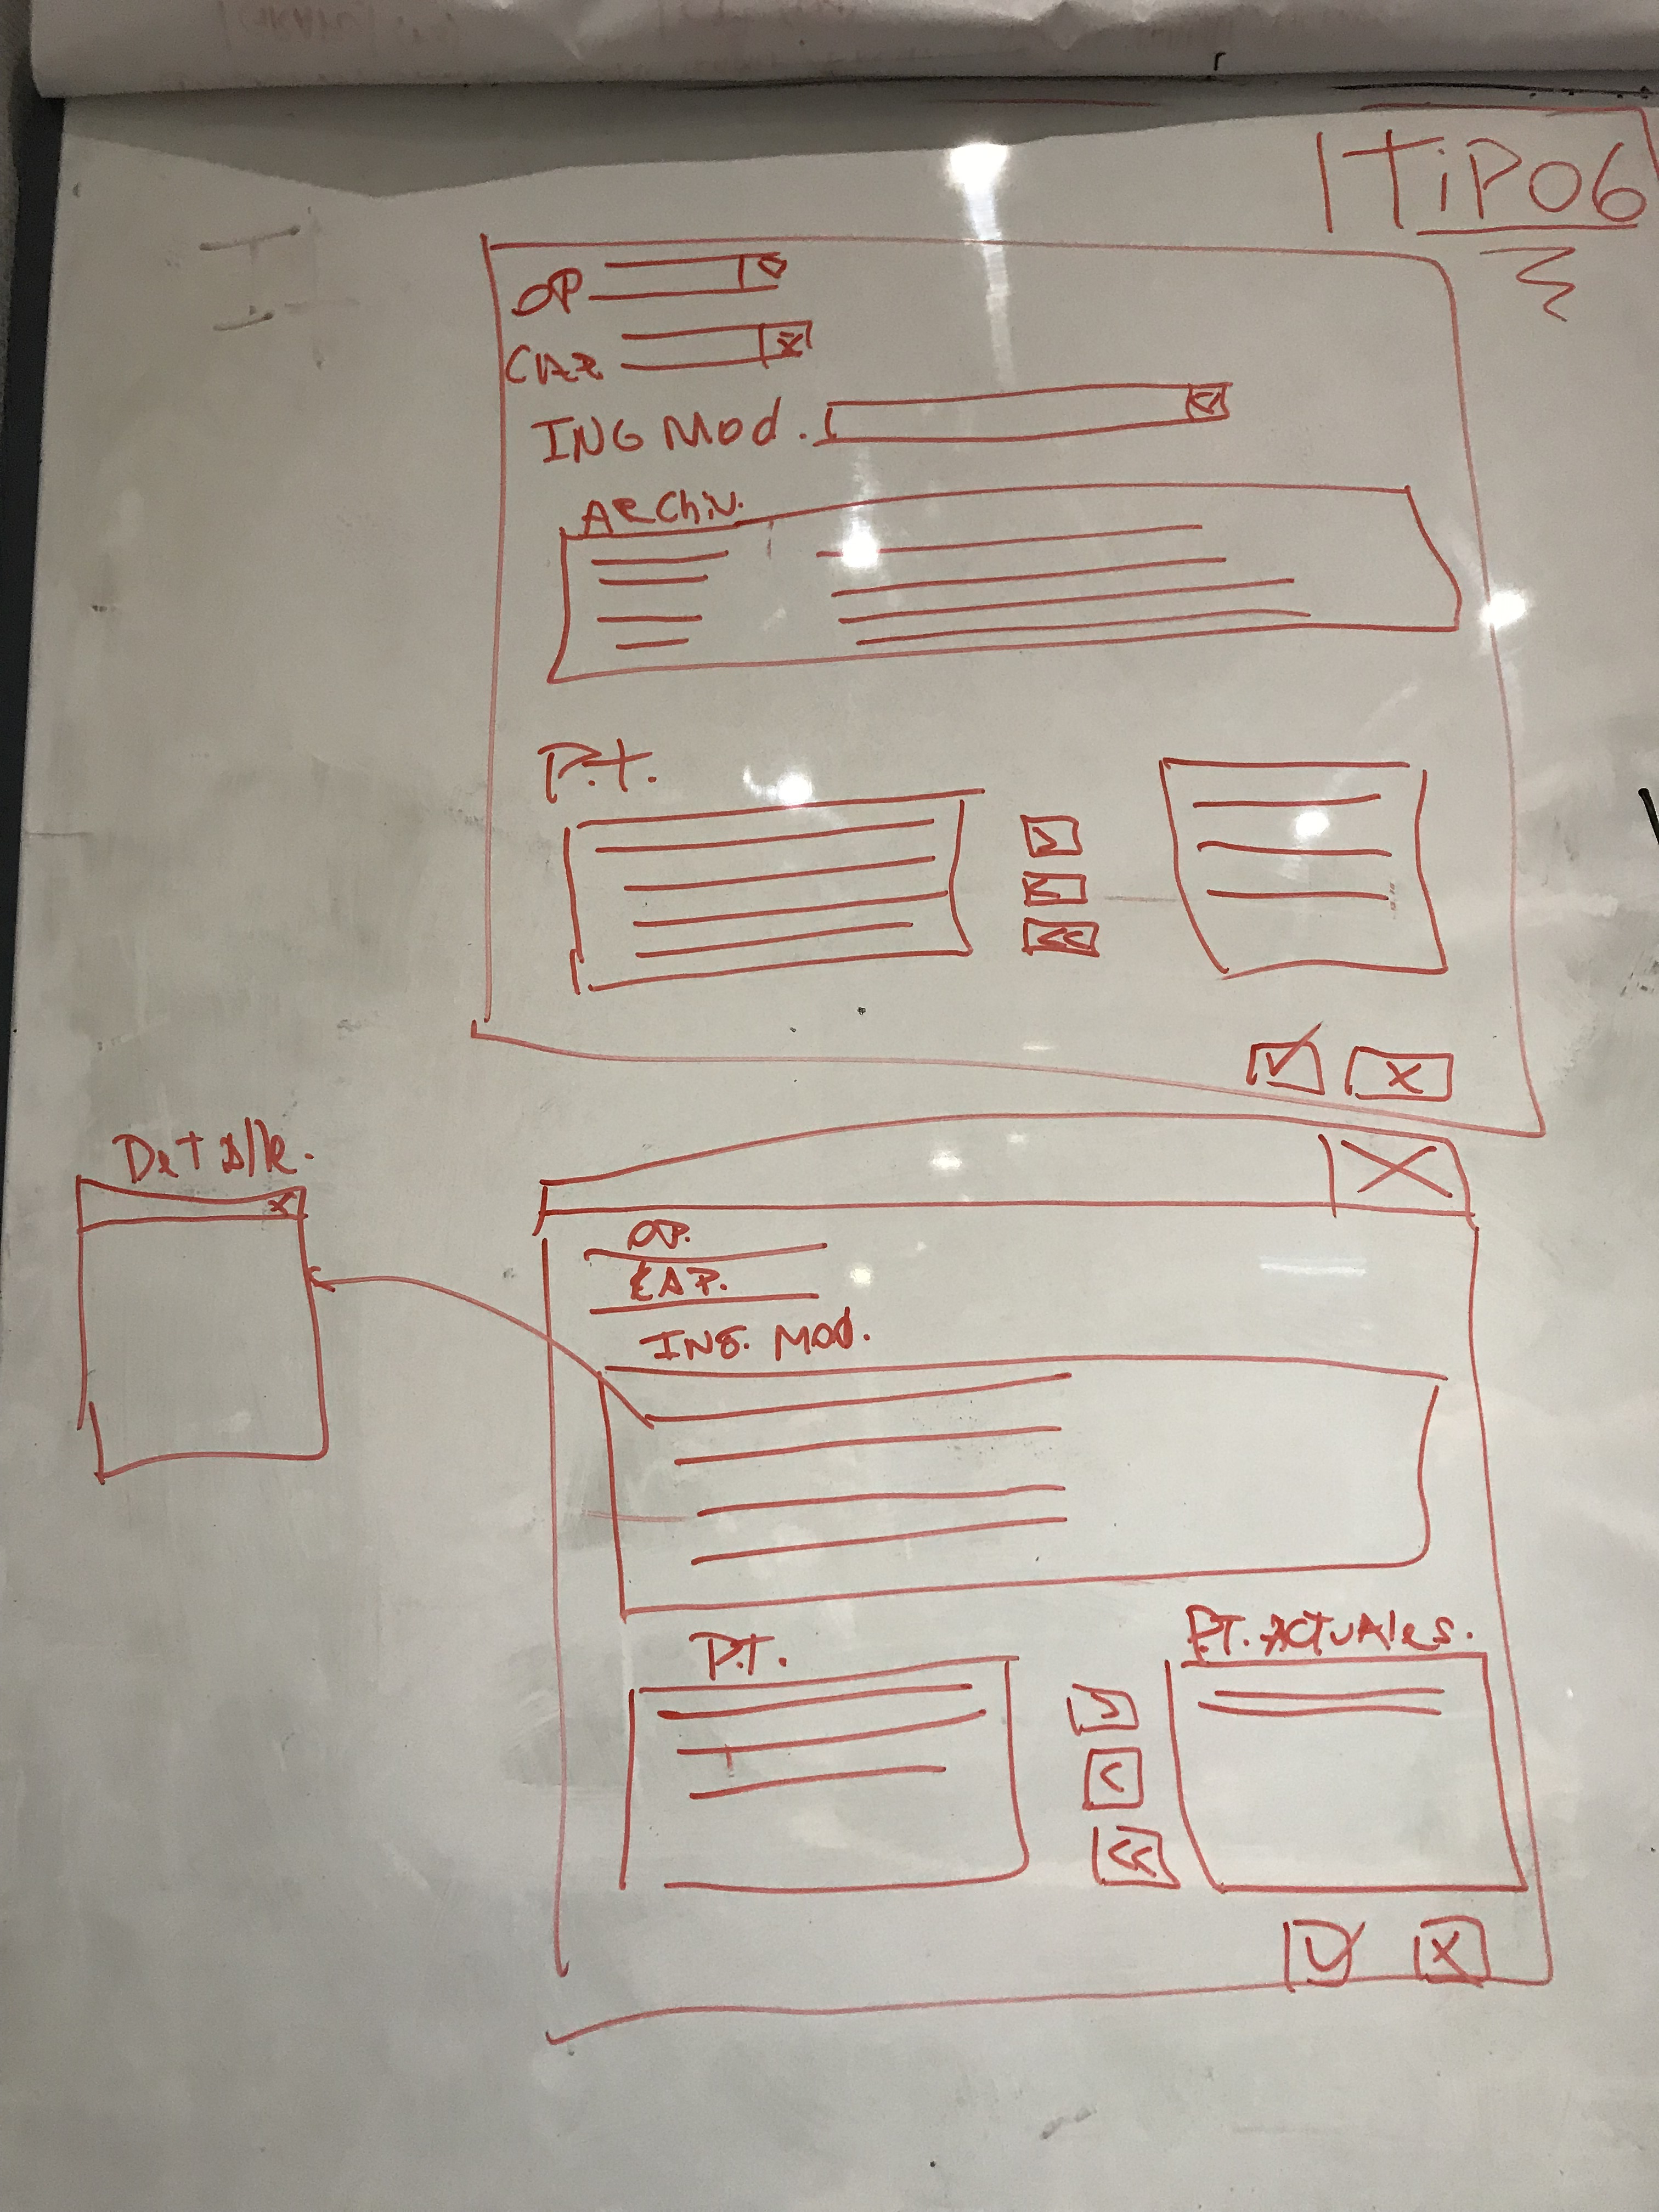 TiPO6
OP
ING Mod.
Archiv.
P.T.
Detalle.
OP.
CAP.
ING. Mod.
P.T.
P.T. ACTUAles.